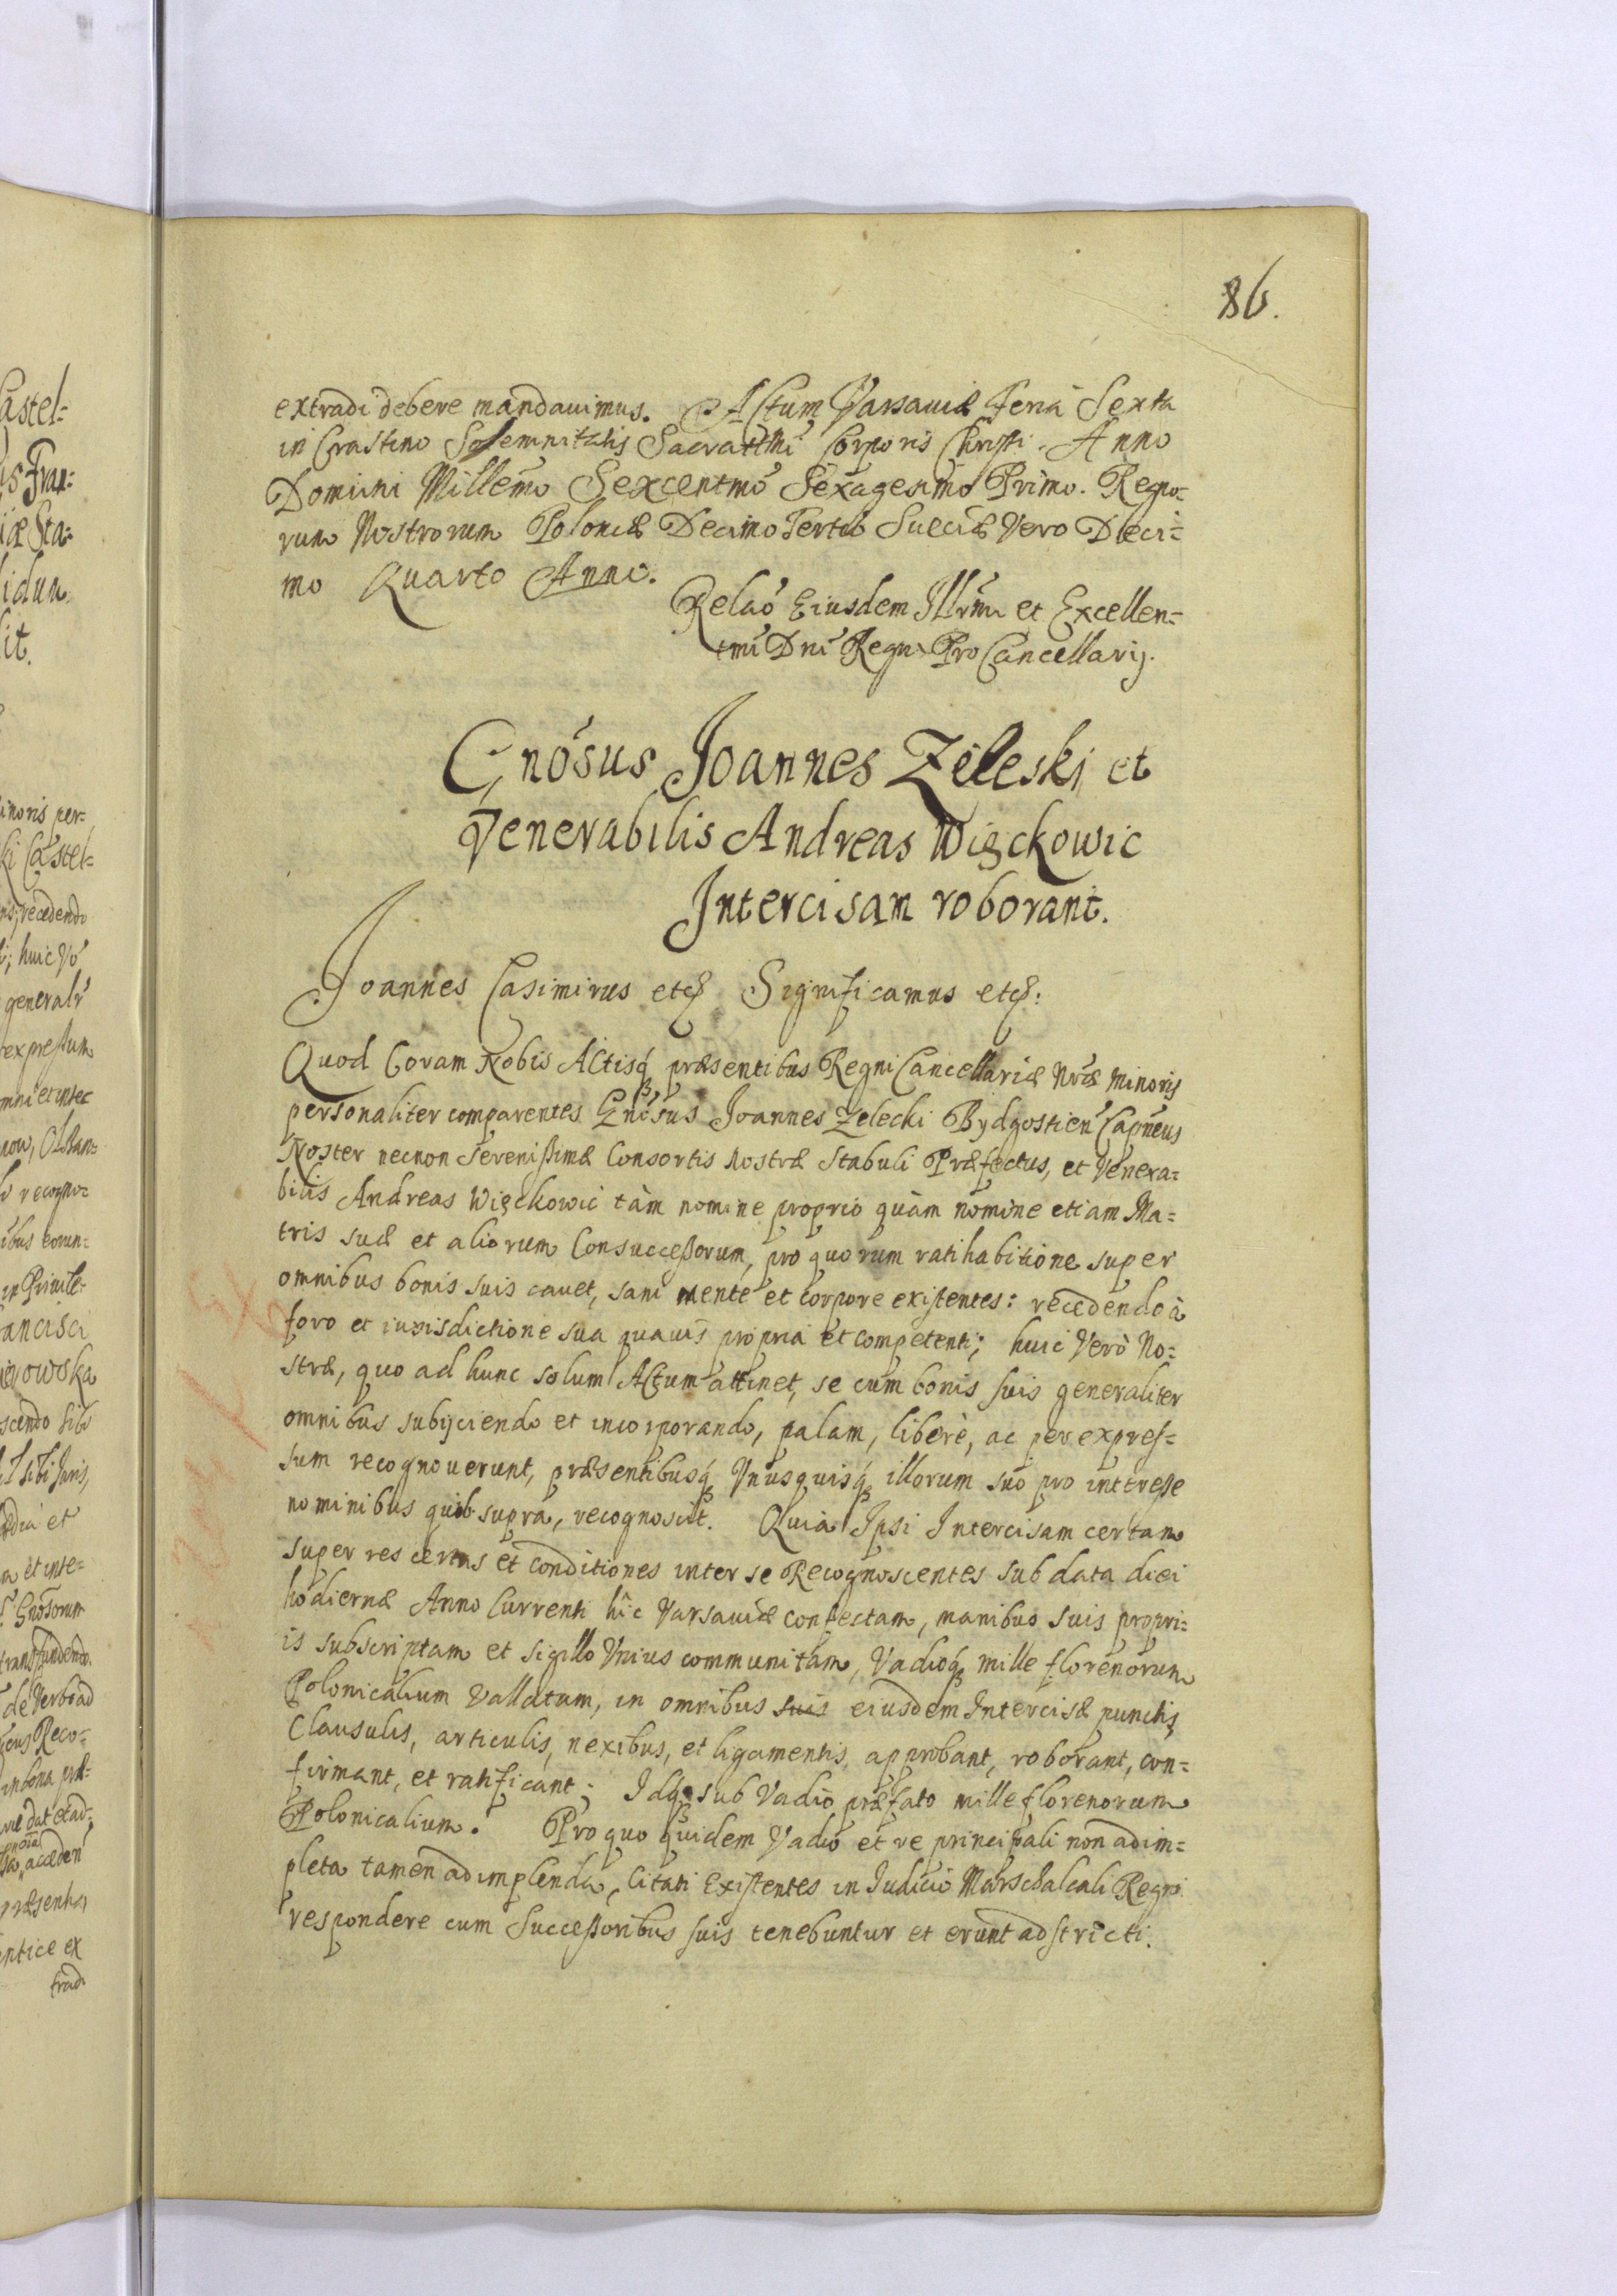 86.
extradi debere mandauimus. Actum Varsauiæ Feria Sexta
in Crastino Solemnitatis Sacratmi Corporis Christi. Anno
Domini Millemo Sexcentmo Sexagesimo Primo. Regno-
rum Nostrorum Poloniæ Decimo Tertio Sueciæ Vero Deci=
mo Quarto Anno.
Relaō Eiusdem Illrmi et Excellen=
tmi Dni Regni Pro Cancellarij.
Gnosus Joannes Zeleski et
Venerabilis Andreas Więckowic
Intercisam roborant.
Joannes Casimirus etc. Significamus etc:
Quod Coram Nobis Actisq præsentibus Regni Cancellariæ Nræ Minoris
personaliter comparentes Gnosus Joannes Zelecki Bydgostien Capneus
Noster necnon Serenissimæ Consortis Nostræ Stabuli Præfectus, et Venera=
bilis Andreas Więckowic tàm nomine proprio quàm nomine etiam Ma=
tris suæ et aliorum Consuccessorum, pro quorum ratihabitione super
omnibus bonis suis cauet, sani mente et corpore existentes: recedendo à
foro et iurisdictione sua quauis propria et competenti; huic Verò No=
stræ, quo ad hunc solum Actum attinet, se cum bonis suis generaliter
omnibus subijciendo et incorporando, palam, liberè, ac per expres=
sum recognouerunt, præsentibusq Vnusquisq illorum suo pro interesse
nominibus quib supra, recognoscit. Quia Ipsi Intercisam certam
super res certas et conditiones inter se Recognoscentes sub data diei
hodiernæ Anno Currenti hîc Varsauiæ confectam, manibus suis propri=
is subscriptam et sigillo Vnius communitam, Vadioq mille florenorum
Polonicalium Vallatam, in omnibus suis eiusdem Intercisæ punctis,
Clausulis, articulis, nexibus, et ligamentis, approbant, roborant, con=
firmant, et ratificant; Idq sub Vadio præfato mille florenorum
Polonicalium. Pro quo quidem Vadio et re principali non adim=
pleta tamen adimplenda, Citati Existentes in Iudicio Marschalcali Regni
respondere cum Successoribus suis tenebuntur et erunt adstricti.